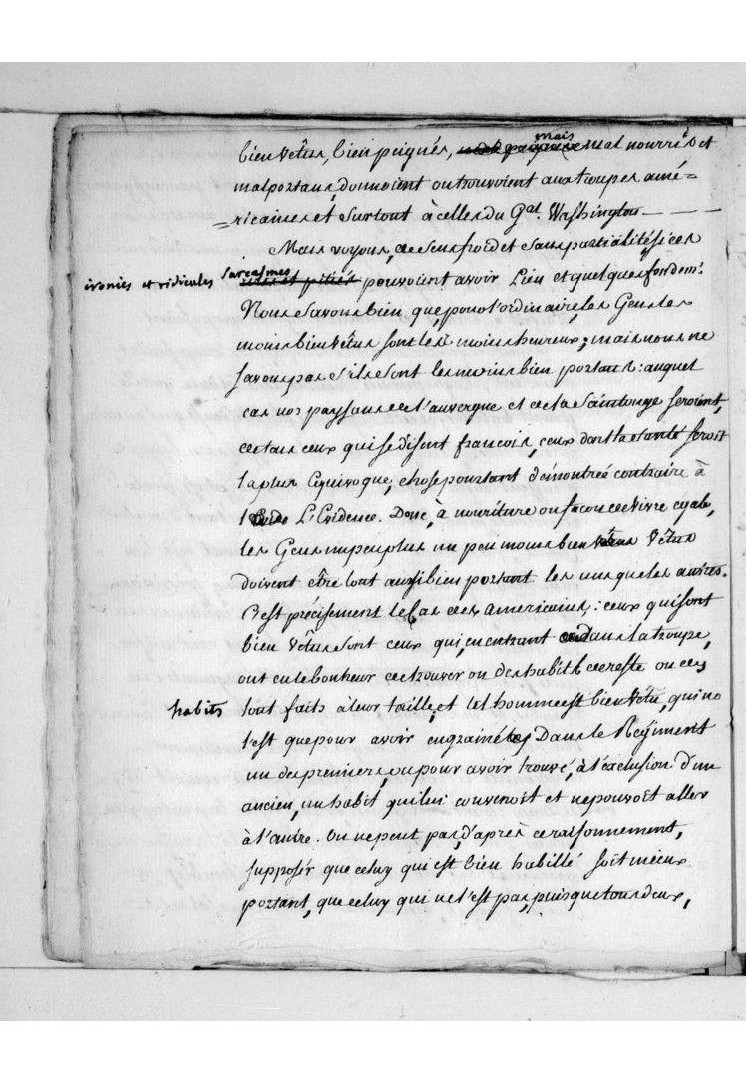 bien vêtus, bien peignés, mais mal nourris et
mal portans, donnoient ou trouvoient aux troupes amé=
=ricaines et surtout à celles du Gal. Washington
Mais voyons, de sens froid et sans partialité, si ces
ironies et ridicules sarcasmes pouvoient avoir Lieu et quelques fondemt.
Nous savons bien que, pour l'ordinaire, les Gens les
moins bien vêtus sont les moins heureux; mais nous ne
savons pas s'ils sont les moins bien portans: auquel
cas nos paysans de l'auvergne et de la Saintonge seroient,
certains ceux qui se disent francois, ceux dont la santé seroit
la plus Equivoque, chose pourtant démontrée contraire à
L'Evidence. Donc, à nouriture ou facon de vivre egale,
les Gens un peu plus un peu moins bien vêtus
doivent être tout aussi bien portant les uns que les autres.
C'est précisement le Cas des Americains: ceux qui sont
bien vêtus sont ceux qui, en entrant dans la troupe,
ont eu le bonheur de trouver ou des habits de reste ou des
habits tout faits à leur taille, et tel homme est bien vêtu, qui ne
l'est que pour avoir Dans le Regiment
un des premiers, ou pour avoir trouvé, à l'exclusion d'un
ancien, un habit qui lui convenoit et ne pouvoit aller
à l'autre. On ne peut pas, d'après ce raisonnement,
supposér que celuy qui est bien habillé soit mieux
portant, que celuy qui ne l'est pas, puisque tous deux,